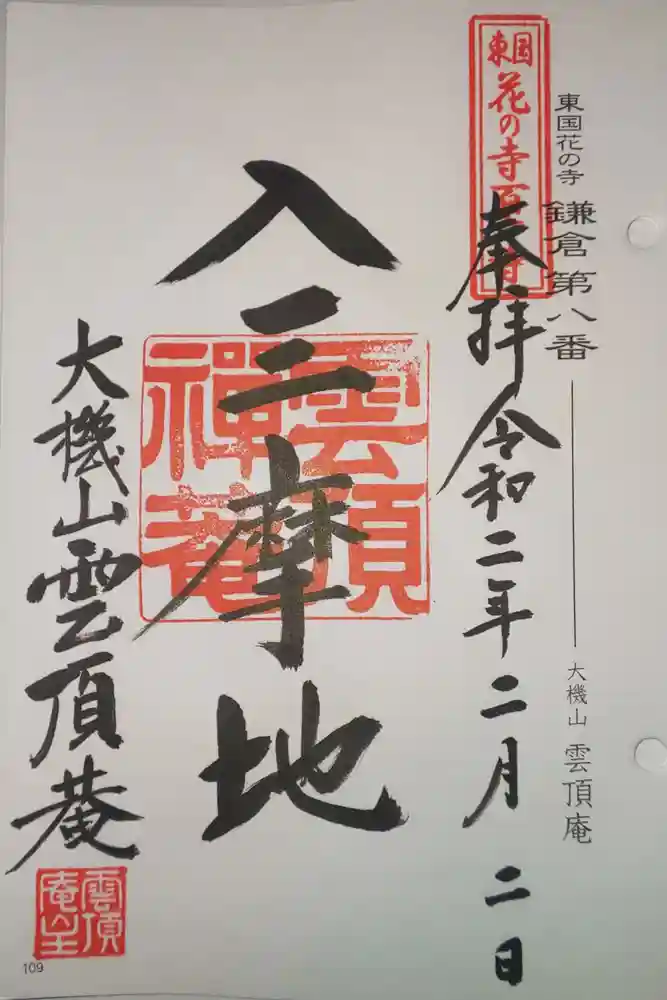 東国花の寺 鎌倉第八番
大機山 雲頂庵
東国
花の寺百ヶ寺
奉拝 令和二年二月二日
入三摩地
雲頂
禅菴
大機山雲頂菴
雲頂
庵主
109